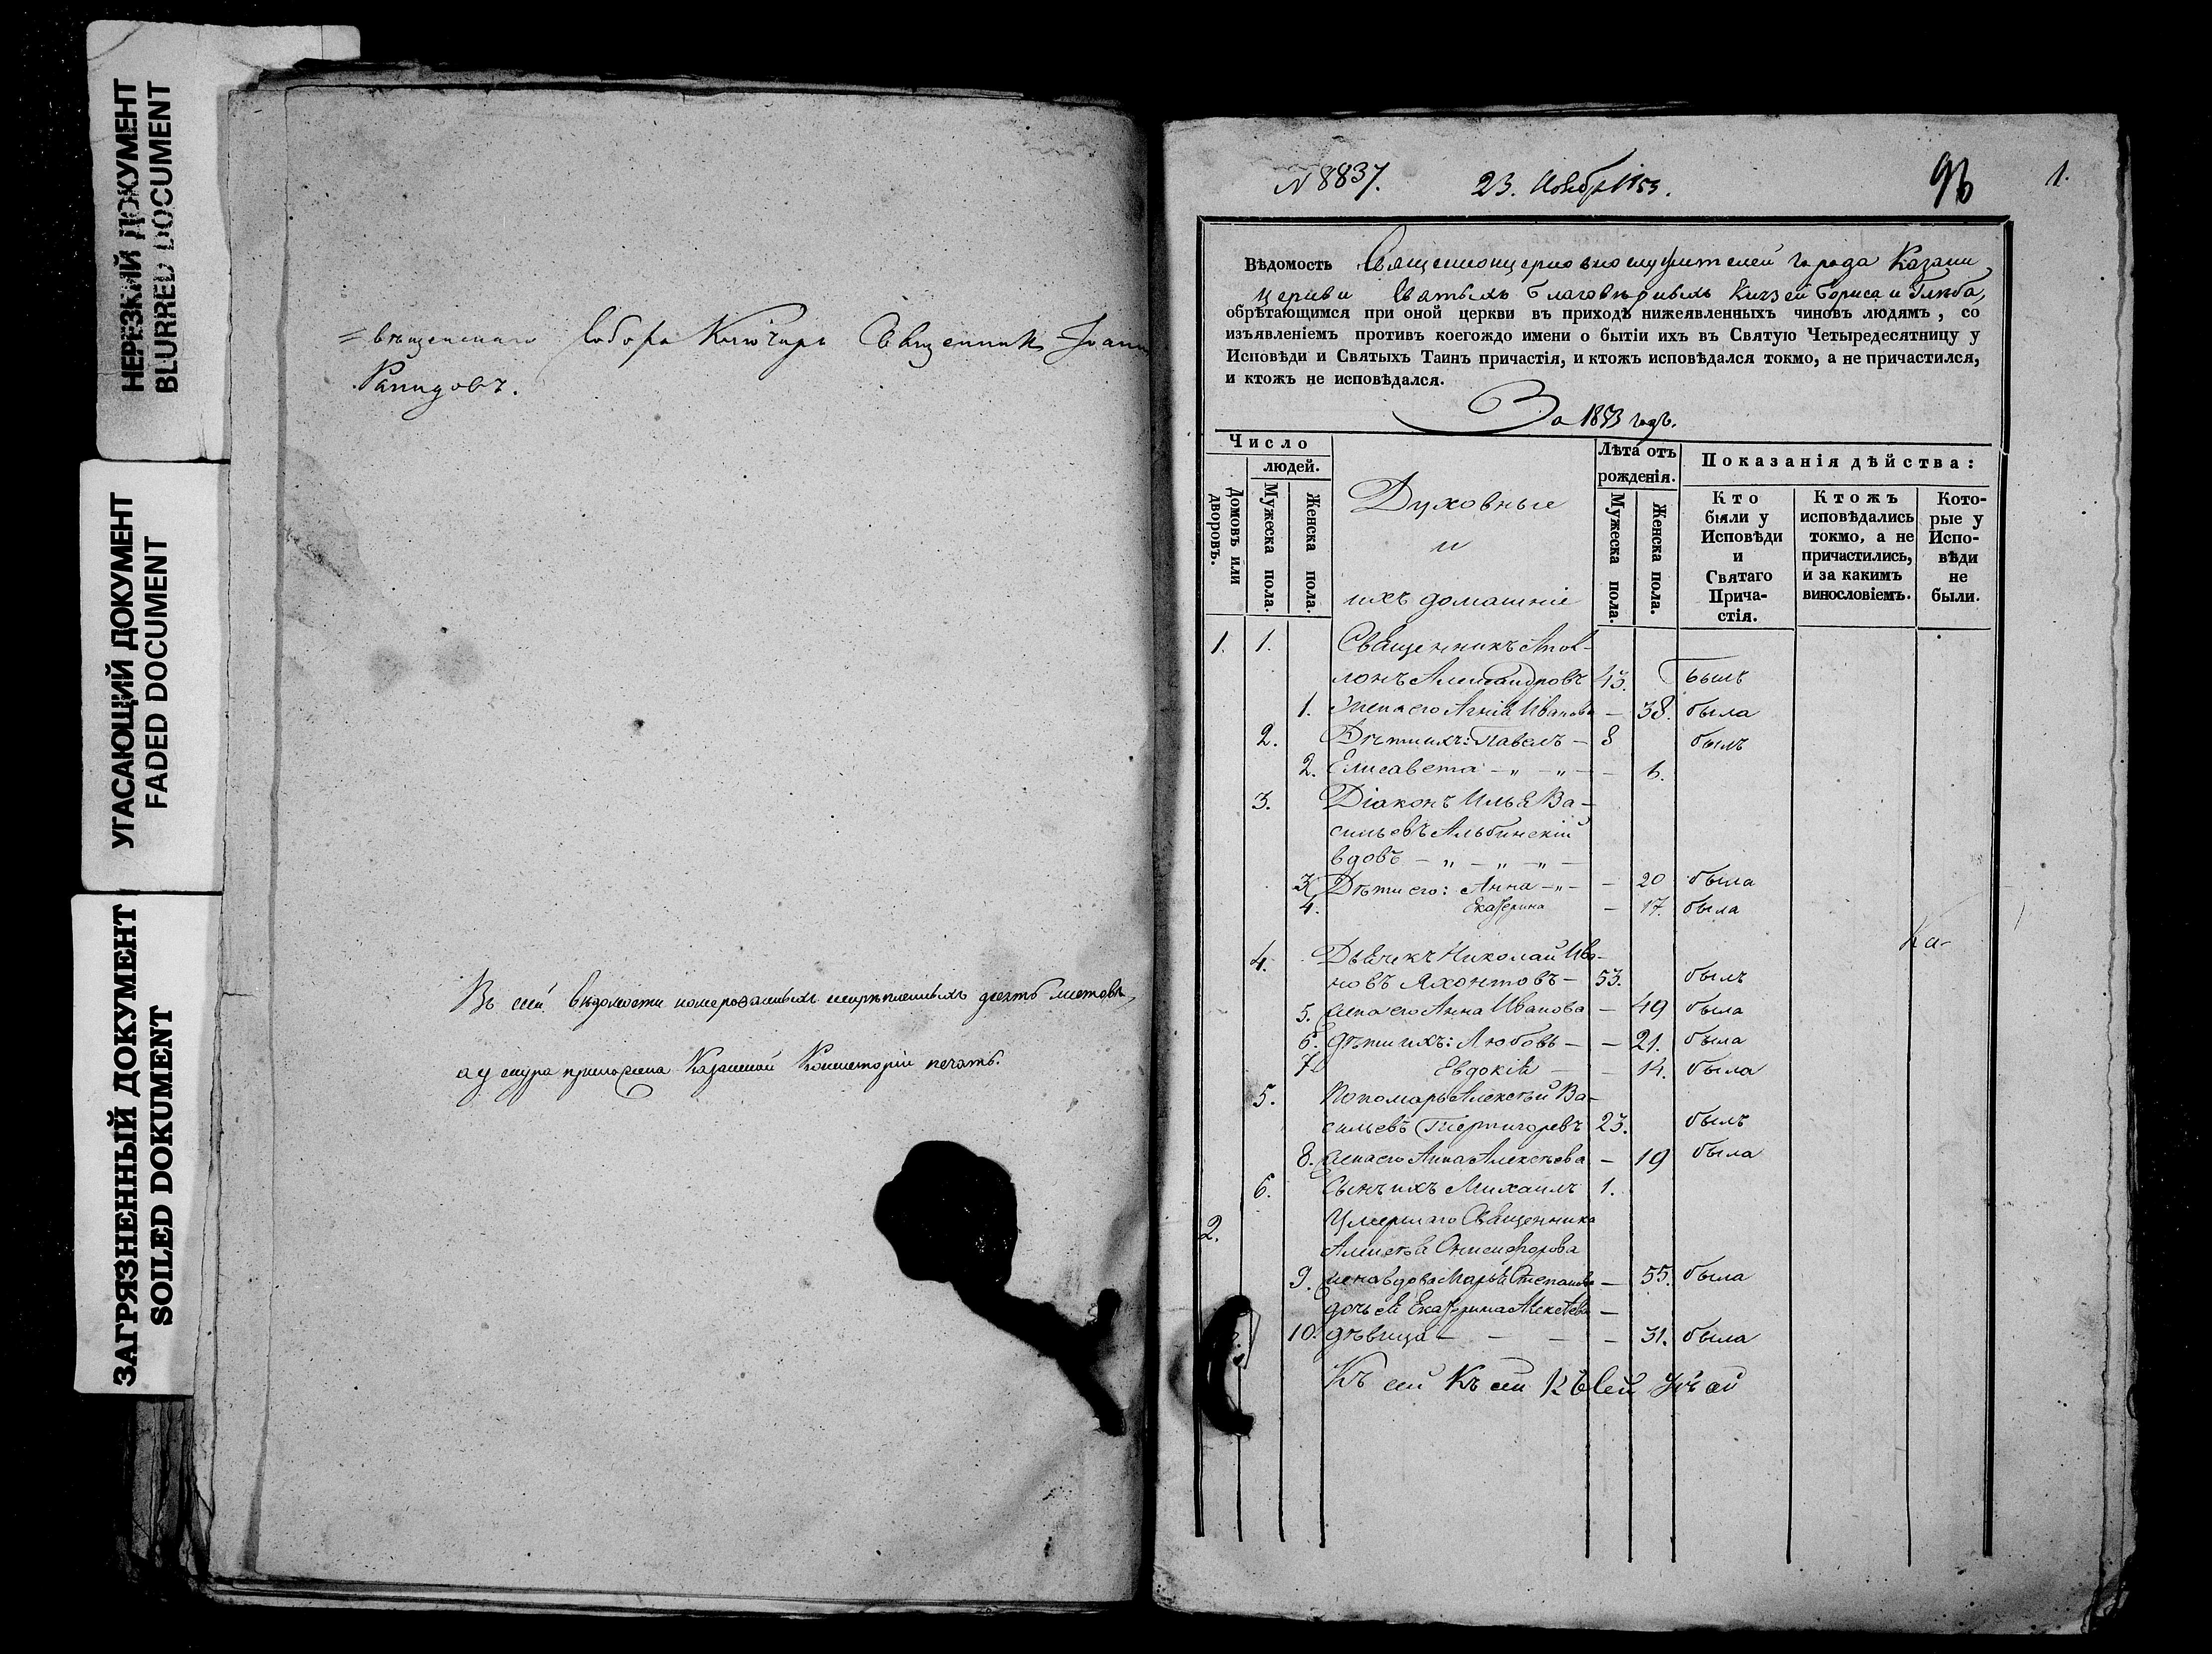 НЕРЕЗКИЙ ДОКУМЕНТ
BLURRED DOCUMENT
УГАСАЮЩИЙ ДОКУМЕНТ
FADED DOCUMENT
ЗАГРЯЗНЕННЫЙ ДОКУМЕНТ
SOILED DOKUMENT
=вѣщенскаго Собора Ключарь Священникъ Іоанн
Въ сей вѣдомости номерованныхъ скрѣпленныхъ десять листовъ,
а у снура приложена Казанской Консисторіи печать.
N 8837. 23. Ноября 1853. 96 1.
Вѣдомость Священноцерковнослужителей города Казани
церкви Святыхъ Благовѣрныхъ Князей Бориса и Глѣба,
обрѣтающимся при оной церкви въ приходѣ нижеявленныхъ чиновъ людямъ, со
изъявленіемъ противъ коегождо имени о бытіи ихъ въ Святую Четыредесятницу у
Исповѣди и Святыхъ Таинъ причастія, и ктожъ исповѣдался токмо, а не причастился,
и ктожъ не исповѣдался.
За 1853 годъ.
Число
людей.
Домовъ или дворовъ.
Мужеска пола.
Женска пола.
Духовные
и
ихъ домашніе
Лѣта отъ
рожденія.
Мужеска пола.
Женска пола.
Показанія дѣйства:
Кто
были у
Исповѣди
и
Святаго
Прича-
стія.
Ктожъ
исповѣдались
токмо, а не
причастились,
и за какимъ
винословіемъ.
Кото-
рые у
Испо-
вѣди
не
были.
1. 1. Священникъ Апол-
лонъ Александровъ 43. Былъ
1. Жена его Агнія Иванова — 38. была
2. Дѣти ихъ: Павелъ — 8 былъ
2. Елисавета — „ — „ — — 6.
3. Діаконъ Илья Ва-
сильевъ Альбинскій
вдовъ — „ — „ — „ —
3. Дѣти его: Анна — „ — — 20 была
4. Екатерина — 17. была
Ка-
4. Дьячекъ Николай Ива-
новъ Яхонтовъ — 53. былъ
5. Жена его Анна Иванова — 49 была
6. Дѣти ихъ: Любовь — — 21. была
7. Евдокія — — 14. была
5. Пономарь Алексѣй Ва-
сильевъ 23. былъ
8. Жена его Анна Алексѣева — 19 была
6. Сынъ ихъ Михаилъ 1.
2. Умершаго Священника
Алексѣя Онисифорова
9. жена вдова Марья Степанова — 55. была
дочь ея Екатерина Алексѣева —
10. дѣвица — — — — 31. была
Къ сей Къ сей